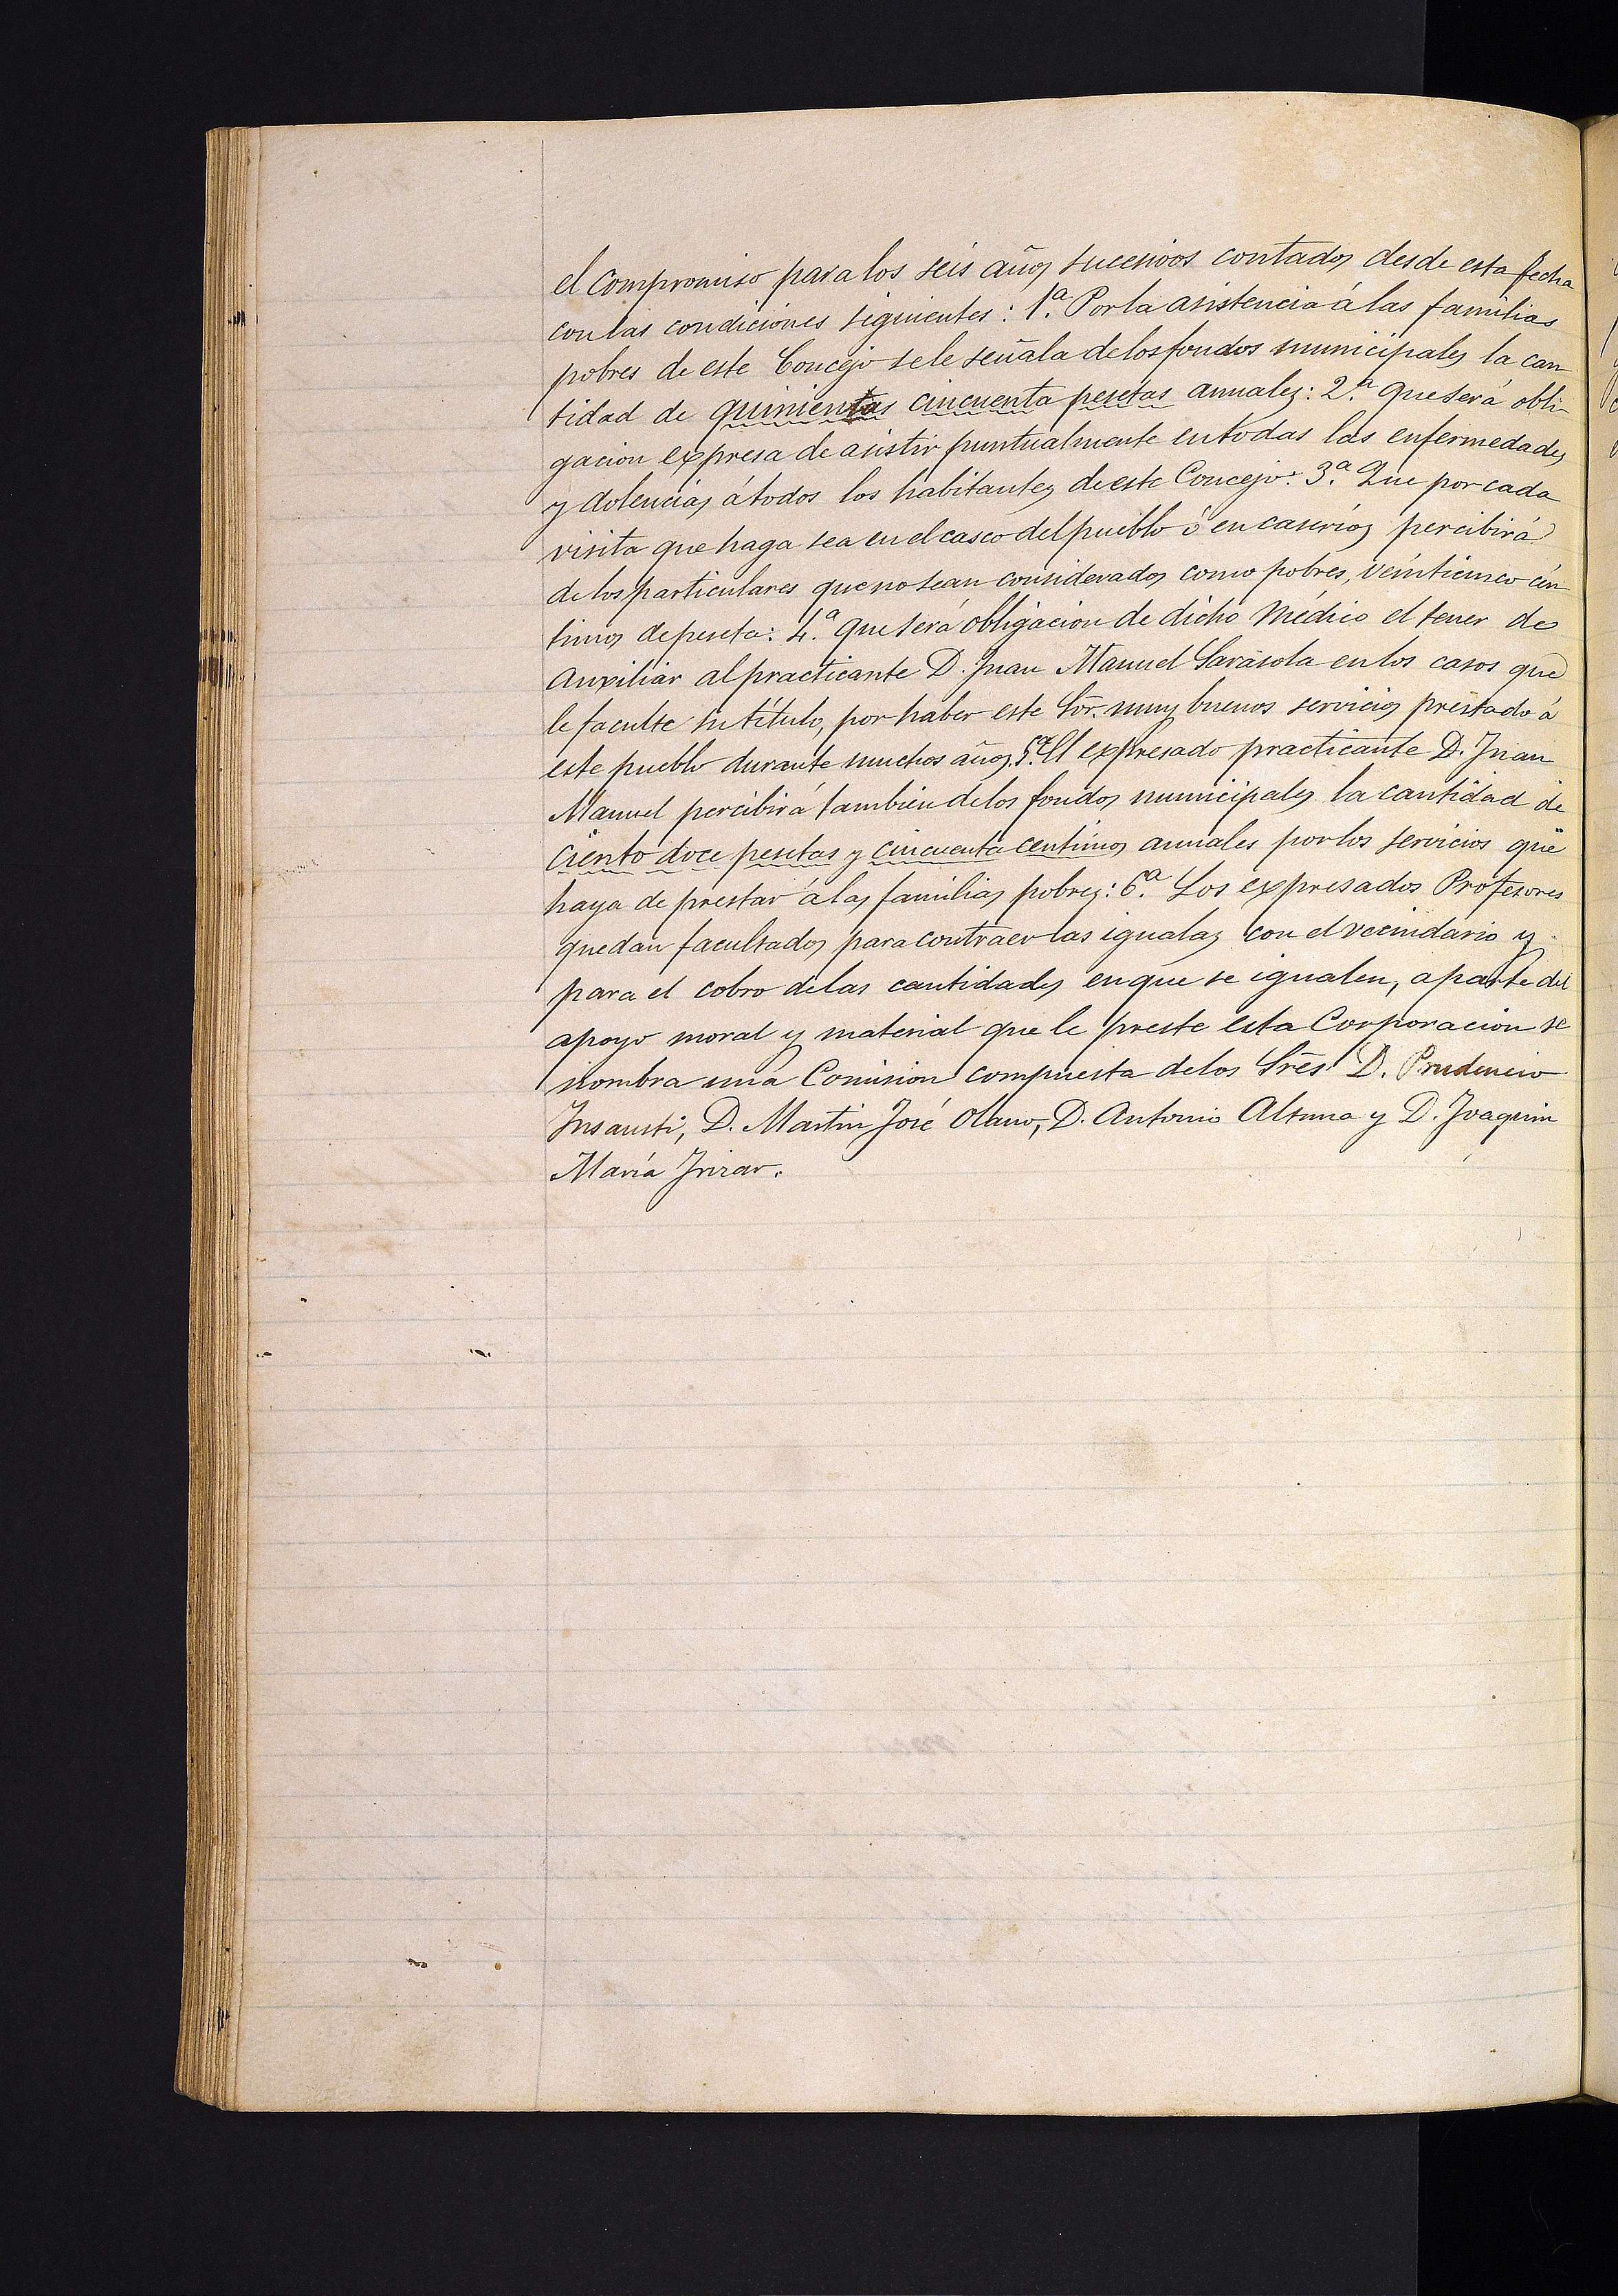 el compromiso para los seis años sucesivos contados desde esta fecha
con las condiciones siguientes: 1.ª Por la asistencia á las familias
pobres de este Concejo se le señala de los fondos municipales la can
tidad de quinientas cincuenta pesetas anuales: 2.ª que será obli-
gacion expresa de asistir puntualmente en todas las enfermedades
y dolencias á todos los habitantes de este Concejo: 3.ª Que por cada
visita que haga sea en el casco del pueblo ó en caseríos percibirá
de los particulares que no sean considerados como pobres, veinticinco cén
timos de peseta: 4.ª que será obligacion de dicho Médico el tener de
auxiliar al practicante D. Juan Manuel Sarasola en los casos que
le faculte su título, por haber este Sor. muy buenos servicios prestado á
este pueblo durante muchos años. 5.ª El expresado practicante D. Juan
Manuel percibirá tambien de los fondos municipales la cantidad de
ciento doce pesetas y cincuenta centimos anuales por los servicios que
haya de prestar á las familias pobres: 6.ª Los expresados Profesores
quedan facultados para contraer las igualas con el vecindario y
para el cobro de las cantidades en que se igualen, aparte del
apoyo moral y material que le preste esta Corporacion se
nombra una Comision compuesta de los Sres. D. Prudencio
Insausti, D. Martin José Olano, D. Antonio Altuna y D. Joaquin
María Irizar.